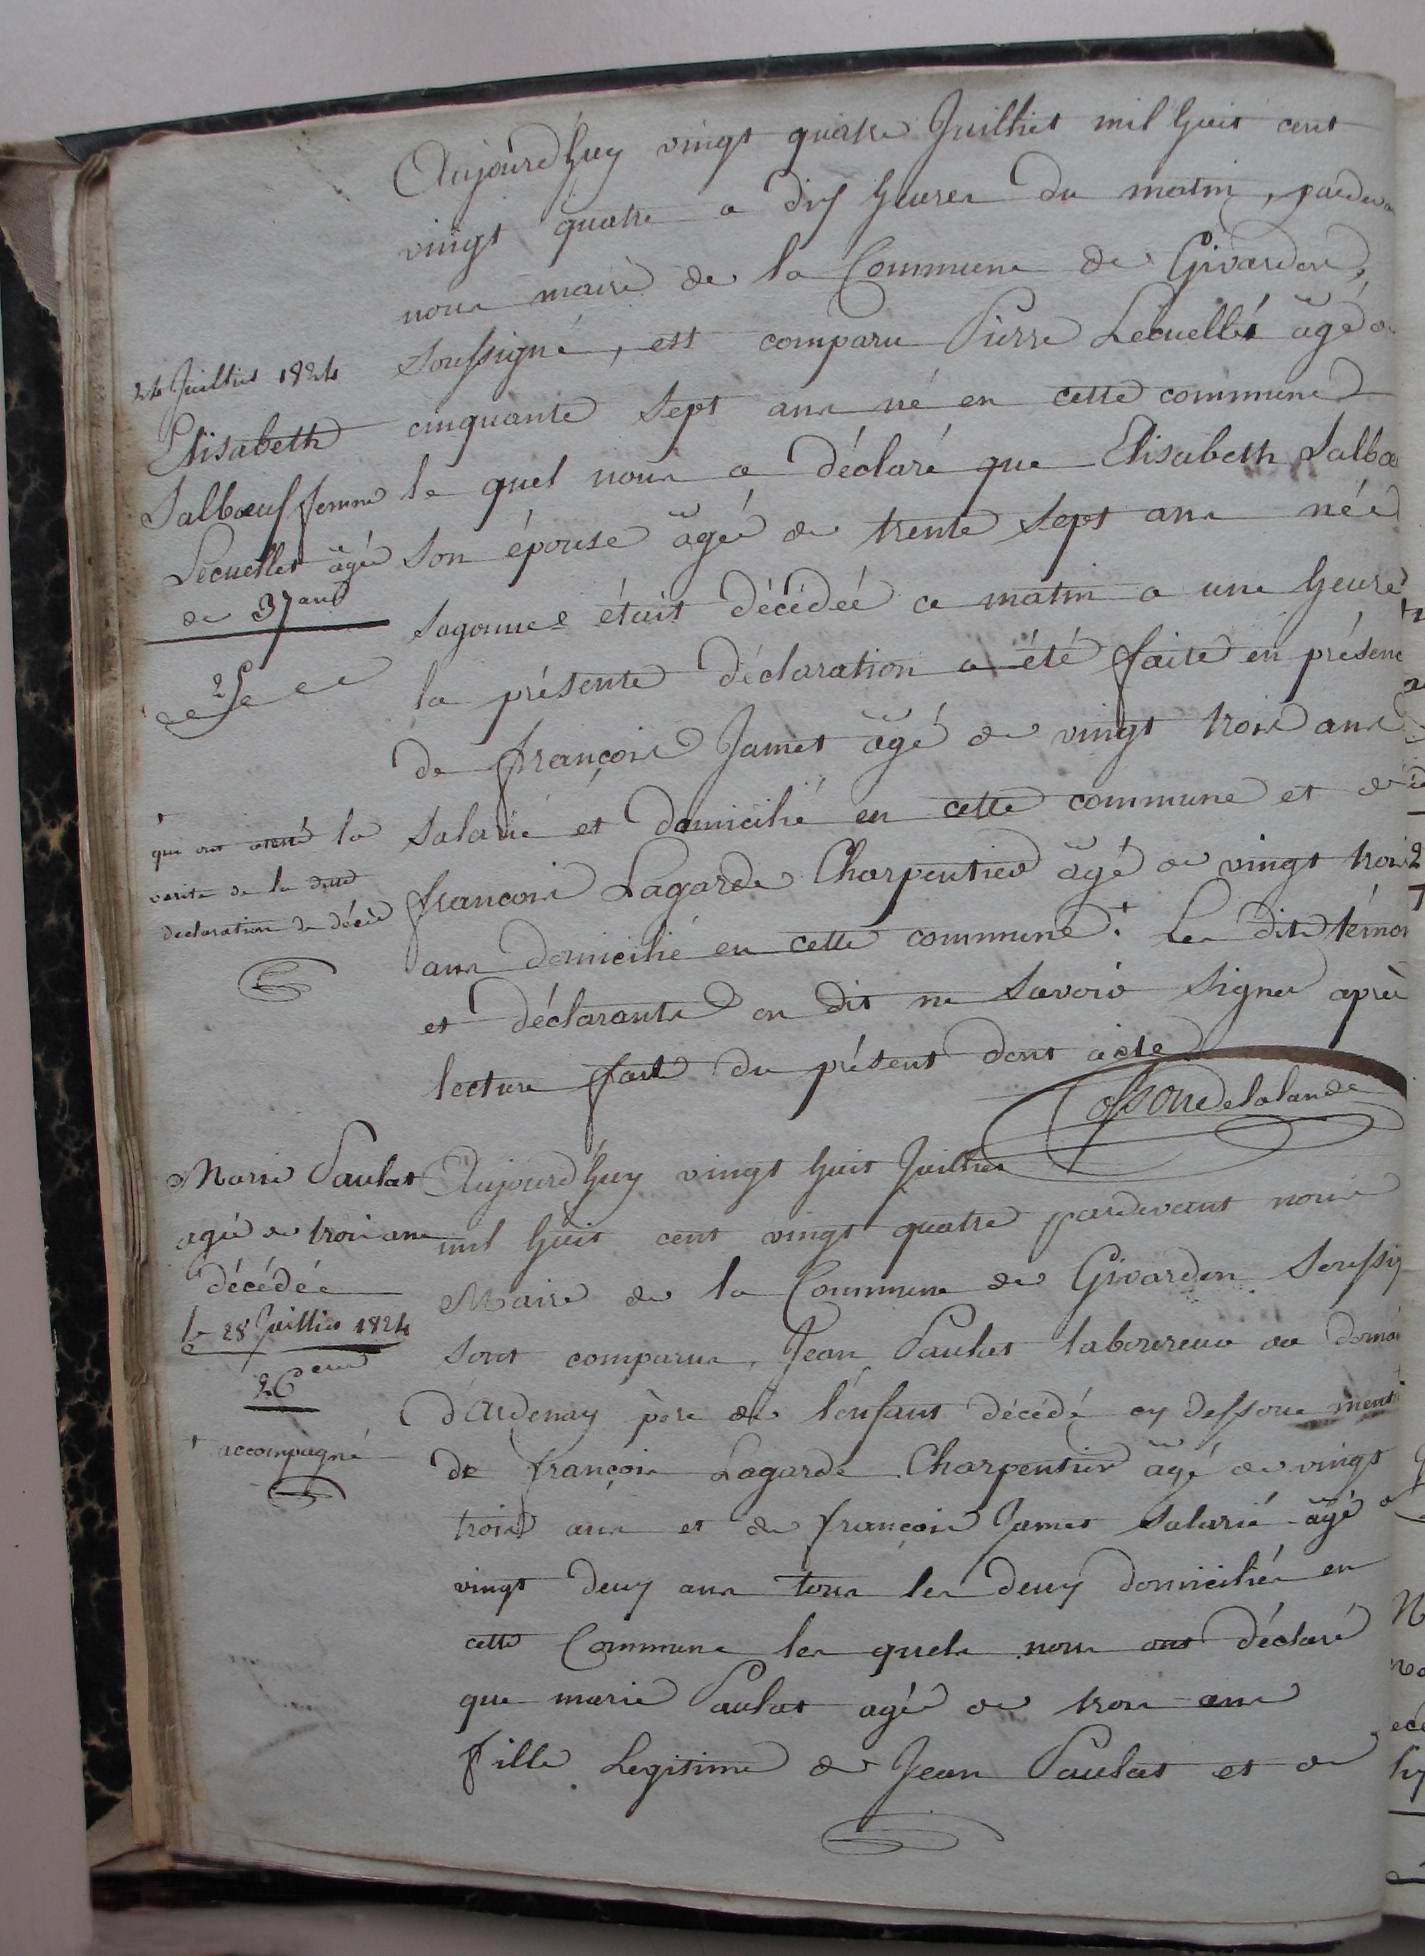 Aujourd'huy vingt quatre Juilliet mil huit cent
vingt quatre a dix heures du matin, pardeva
nous maire de la Commune de Givardon,
soussigné, est comparu Pierre Lecuellé âgé de
cinquante sept ans né en cette commune
le quel nous a déclaré que Elisabeth Salbœ
son épouse âgée de trente sept ans née
Sagonne était décédée ce matin a une heure
la présente déclaration a été faite en présenc
de françois Jamet âgé de vingt trois ans
salarié et domicilié en cette commune et de
françois Lagarde Charpentier âgé de vingt trois
ans domicilié en cette commune. + Les dits témoi
et déclarants on dit ne savoir signer après
lecture faite du présent dont acte
24 Juilliet 1824
Elisabeth
Salbœuf femme
Lecuellet âgée
de 37 ans
25e
+
qui ont attesté la
verité de la ditte
declaration de décès
Marie Paulat
agée de trois ans
décédée
le 28 Juilliet 1824
26eme
+ accompagné
Aujourd'huy vingt huit Juilliet
mil huit cent vingt quatre pardevant nous
Maire de la Commune de Givardon soussig
sont comparus, Jean Paulat laboureur au domai
d'Ardenay père de l'enfant décédé cy dessous menti
de françois Lagarde Charpentier âgé de vingt
trois ans et de françois Jamet salarié âgé de
vingt deux ans tous les deux domiciliés en
cette Commune les quels nous ont déclaré
que marie Paulat agée de trois ans
fille Legitime de Jean Paulat et de